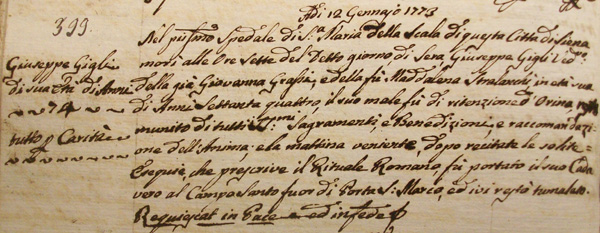 Adi 12 Gennajo 1773
399.
Nel pissmo Spedale di S.ta Maria della Scala di questa Città di Siena
morì alle Ore sette del Detto giorno di Sera, Giuseppe Gigli
della già Giovanna Grassi, e della fù Maddalena in età sua
di Anni Settanta quattro, il suo male fù di ritenzione d'Orina
munito di tutti SS.mi Sagramenti, e Benedizioni, e raccomandazi
one dell'Anima, e la mattina veniente, dopo recitate le solite
Esequie, che prescrive il Rituale Romano, fù portato il suo Cada
vero al Campo Santo fuori di Porta S: Marco, ed ivi restò tumulato.
Requiescat in Pace ed in fede
Giuseppe Gigli
di sua età di Anni
74
tutto p Carità